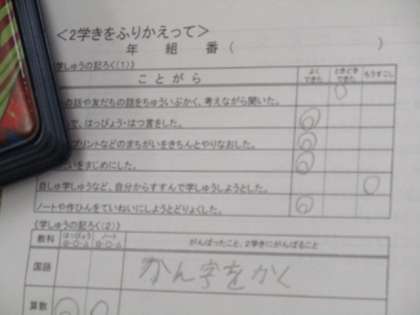 ＜2学きをふりかえって＞
年 組 番（ ）
学しゅうの記ろく(1)
ことがら よくできた ときどきできた もうすこし
の話や友だちの話をちゅういぶかく、考えながら聞いた。
で、はっぴょう・はつ言をした。
プリントなどのまちがいをきちんとやりなおした。
いをまじめにした。
自しゅ学しゅうなど、自分からすすんで学しゅうしようとした。
ノートや作ひんをていねいにしようとどりょくした。
(学しゅうの記ろく(2)
教科 はっぴょう ◎・○・△ ノート ◎・○・△ がんばったこと、2学きにがんばること
国語 かん字をかく
算数